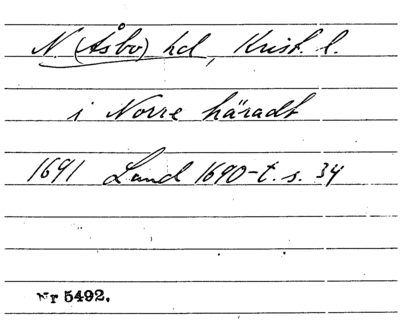 N. (Åsbo) hd, Krist. l.
i Norre häradt
1691 Land 1690-t. s. 34
Nr 5492.